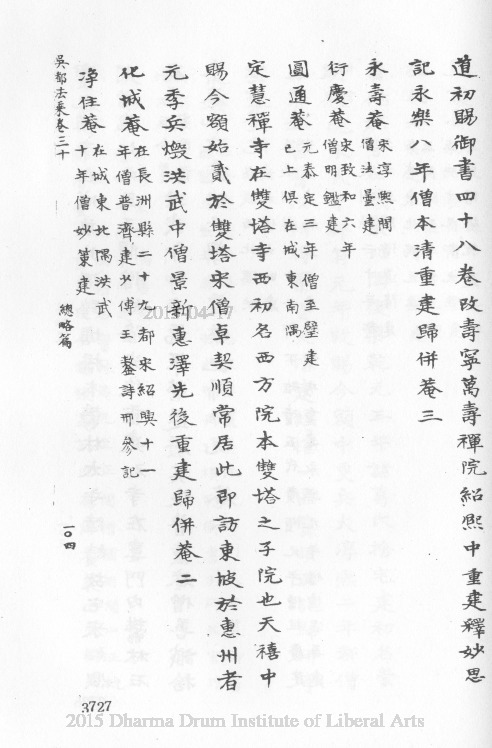 道初賜御書四十八卷改壽寧萬壽禪院紹熙中重建釋妙思
記永樂八年僧本清重建歸併菴三
永壽菴宋淳熙間僧法量建
衍慶菴宋致和六年僧明鑑建
圓通菴元泰定三年僧至璧建已上俱在城東南隅
定慧禪寺在雙塔寺西初名西方院本雙塔之子院也天禧中
賜今額始貳於雙塔宋僧卓契順常居此即訪東坡於惠州者
元季兵燬洪武中僧景新惠澤先後重建歸併菴二
化城菴在長洲縣二十九都宋紹興十一年僧普濟建傅王鏊詩邢參記
淨住菴在城東北隅洪武十年僧妙菓建
吳都法乘卷三十
總略篇
一〇四
3727
2015-04-17
2015 Dharma Drum Institute of Liberal Arts